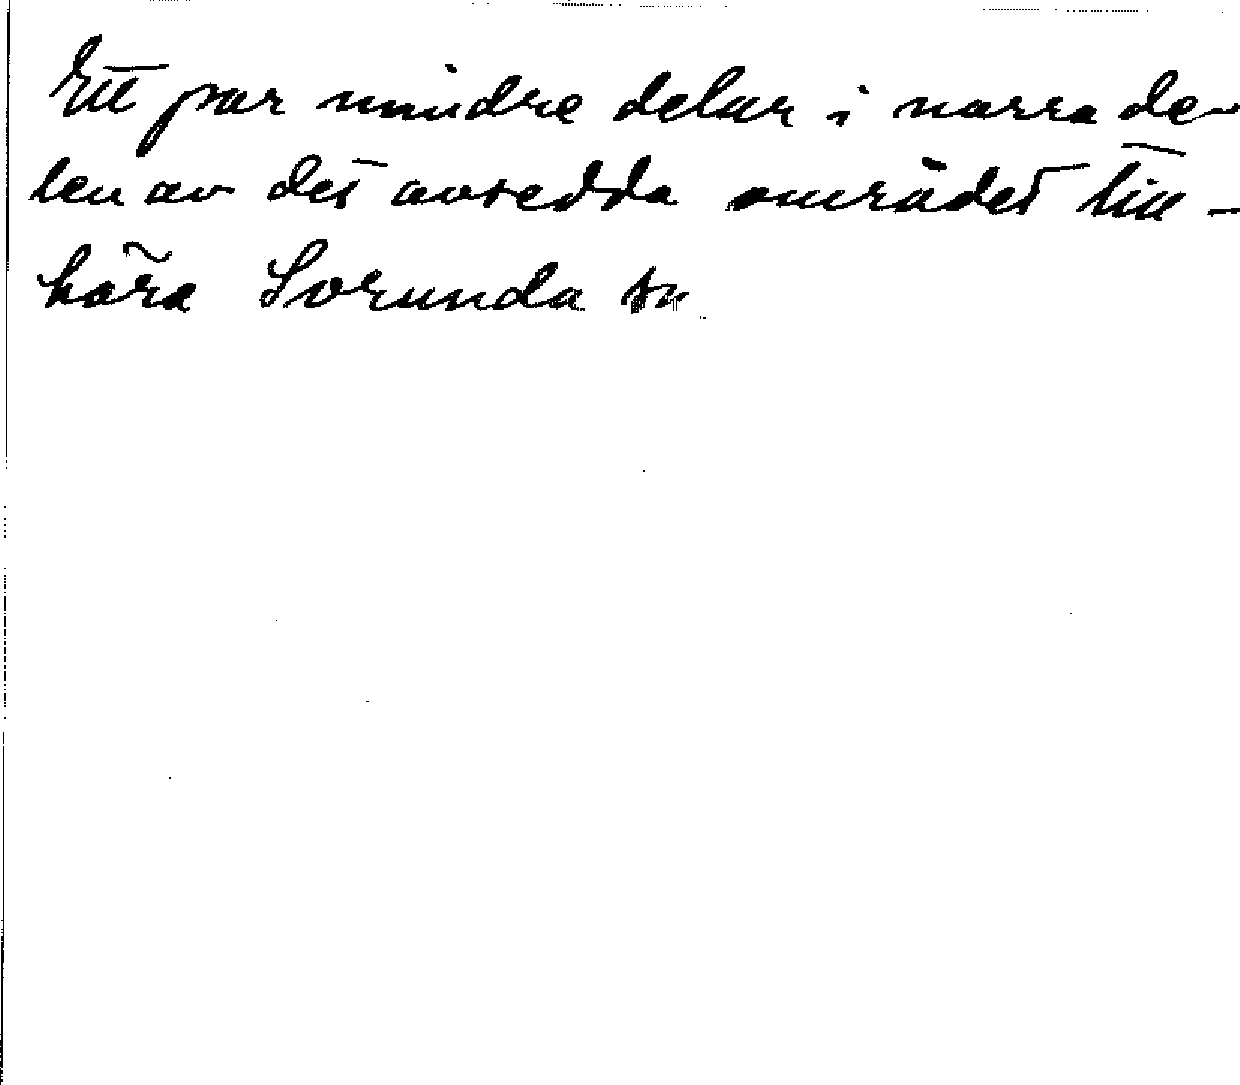 Ett par mindre delar i norra de-
len av det avsedda området till-
höra Sorunda sn